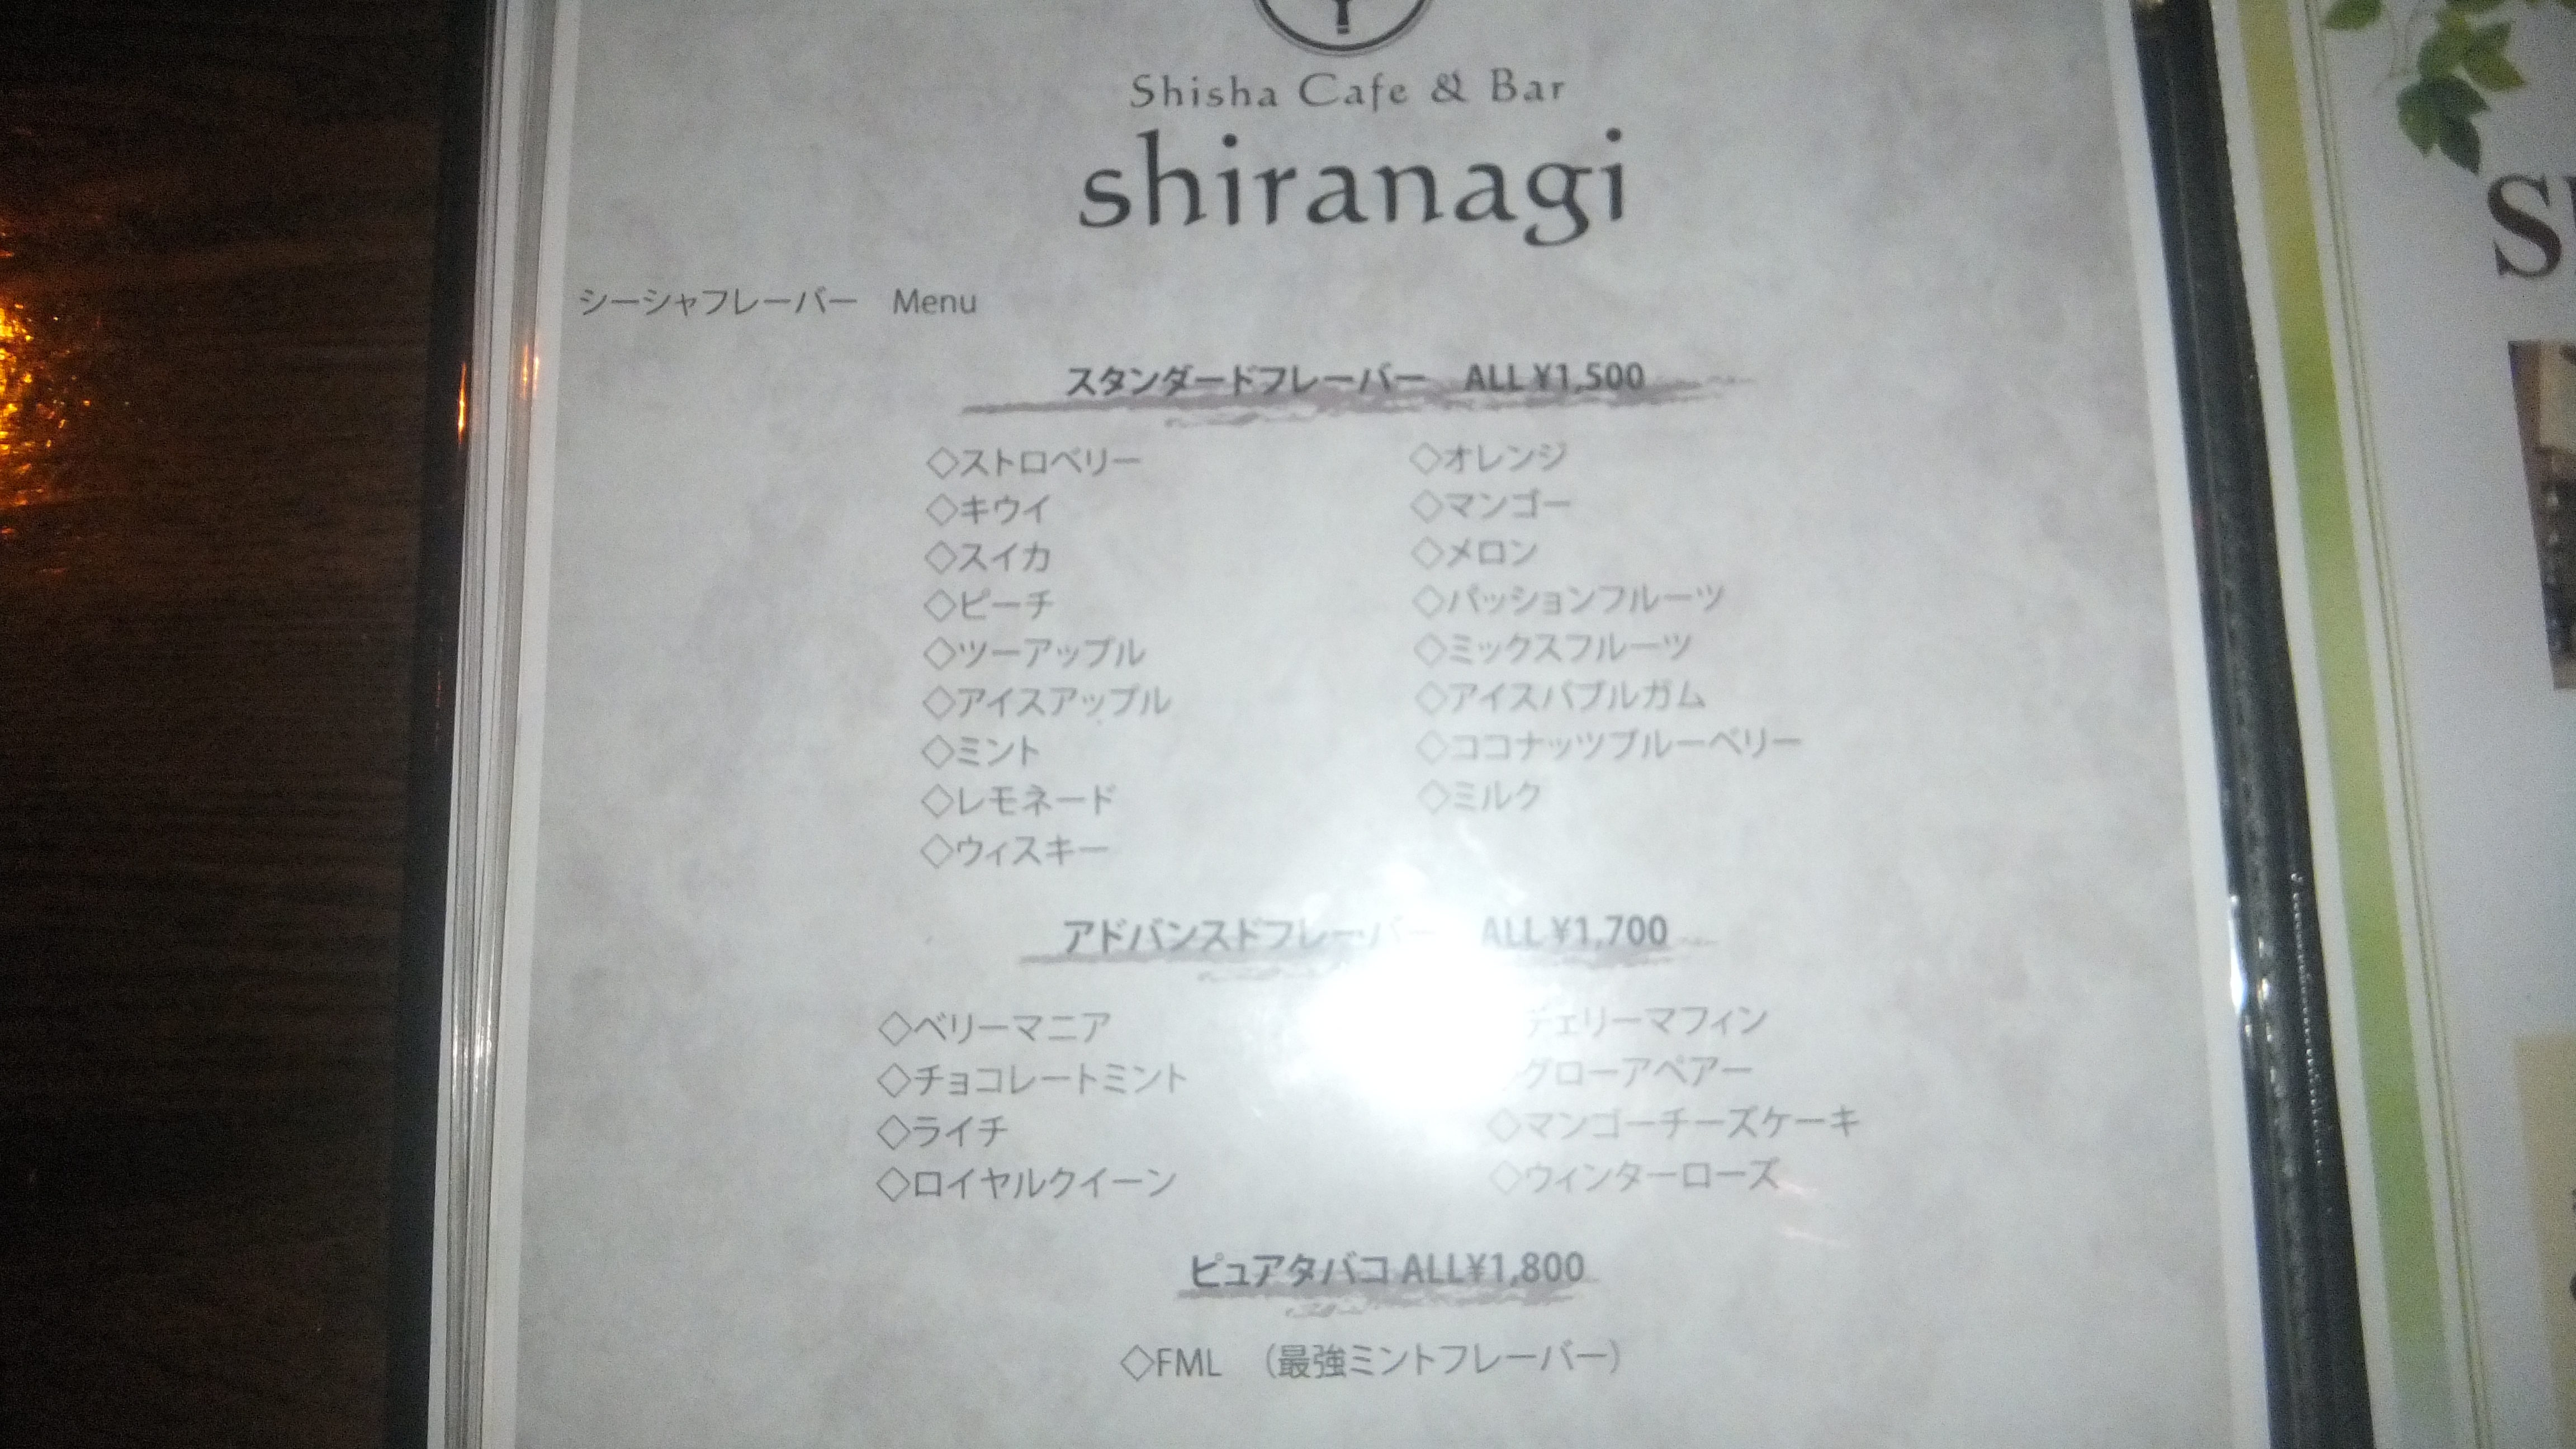 Shisha Cafe & Bar
shiranagi
シーシャフレーバー Menu
スタンダードフレーバー ALL ¥1,500
◇ストロベリー
◇キウイ
◇スイカ
◇ピーチ
◇ツーアップル
◇アイスアップル
◇ミント
◇レモネード
◇ウィスキー
◇オレンジ
◇マンゴー
◇メロン
◇パッションフルーツ
◇ミックスフルーツ
◇アイスバブルガム
◇ココナッツブルーベリー
◇ミルク
アドバンスドフレーバー ALL ¥1,700
◇ベリーマニア
◇チョコレートミント
◇ライチ
◇ロイヤルクイーン
チェリーマフィン
グローアペアー
◇マンゴーチーズケーキ
◇ウィンターローズ
ピュアタバコ ALL¥1,800
◇FML （最強ミントフレーバー）